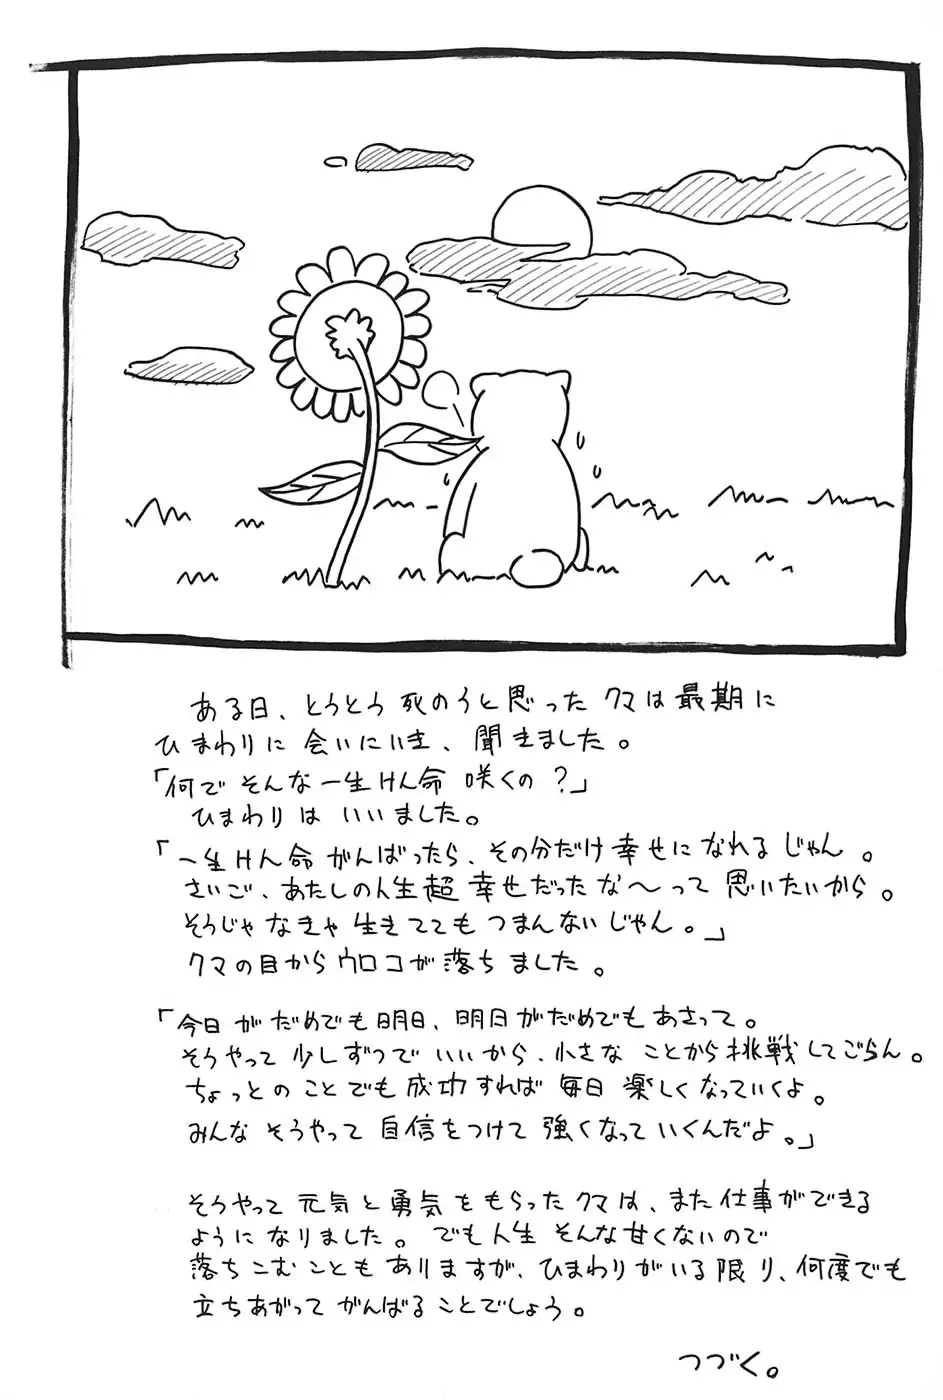 ある日、とうとう死のうと思ったクマは最期に
ひまわりに会いにいき、聞きました。
「何でそんな一生けん命咲くの？」
ひまわりはいいました。
「一生けん命がんばったら、その分だけ幸せになれるじゃん。
さいご、あたしの人生超幸せだったな〜って思いたいから。
そうじゃなきゃ生きててもつまんないじゃん。」
クマの目からウロコが落ちました。
「今日がだめでも明日、明日がだめでもあさって。
そうやって少しずつでいいから、小さなことから挑戦してごらん。
ちょっとのことでも成功すれば毎日楽しくなっていくよ。
みんなそうやって自信をつけて強くなっていくんだよ。」
そうやって元気と勇気をもらったクマは、また仕事ができる
ようになりました。でも人生そんな甘くないので
落ちこむこともありますが、ひまわりがいる限り、何度でも
立ちあがってがんばることでしょう。
つづく。